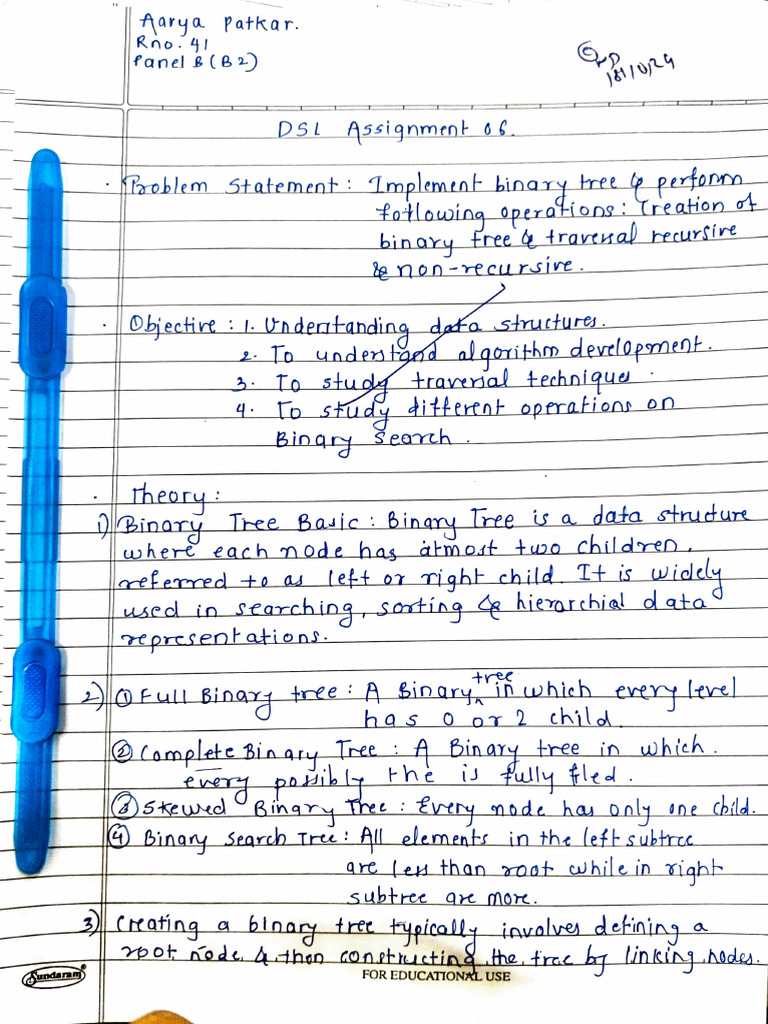 Aarya Patkar.
Rno. 41
Panel B (B2)
DSL Assignment 06.
· Problem Statement : Implement binary tree & perform
following operations : Creation of
binary tree & traversal recursive
& non-recursive.
· Objective : 1. Understanding data structures.
2. To understand algorithm development.
3. To study traversal techniques.
4. To study different operations on
Binary Search.
· Theory :
1) Binary Tree Basic : Binary Tree is a data structure
where each node has atmost two children,
referred to as left or right child. It is widely
used in searching, sorting & hierarchial data
representations.
2) ① Full Binary tree : A Binary tree in which every level
has 0 or 2 child.
② Complete Binary Tree : A Binary tree in which.
every possibly the is fully filed.
③ Skewed Binary Tree : Every node has only one child.
④ Binary Search Tree : All elements in the left subtree
are less than root while in right
subtree are more.
3) Creating a binary tree typically involves defining a
root node & then constructing the tree by linking nodes.
Sundaram®
FOR EDUCATIONAL USE